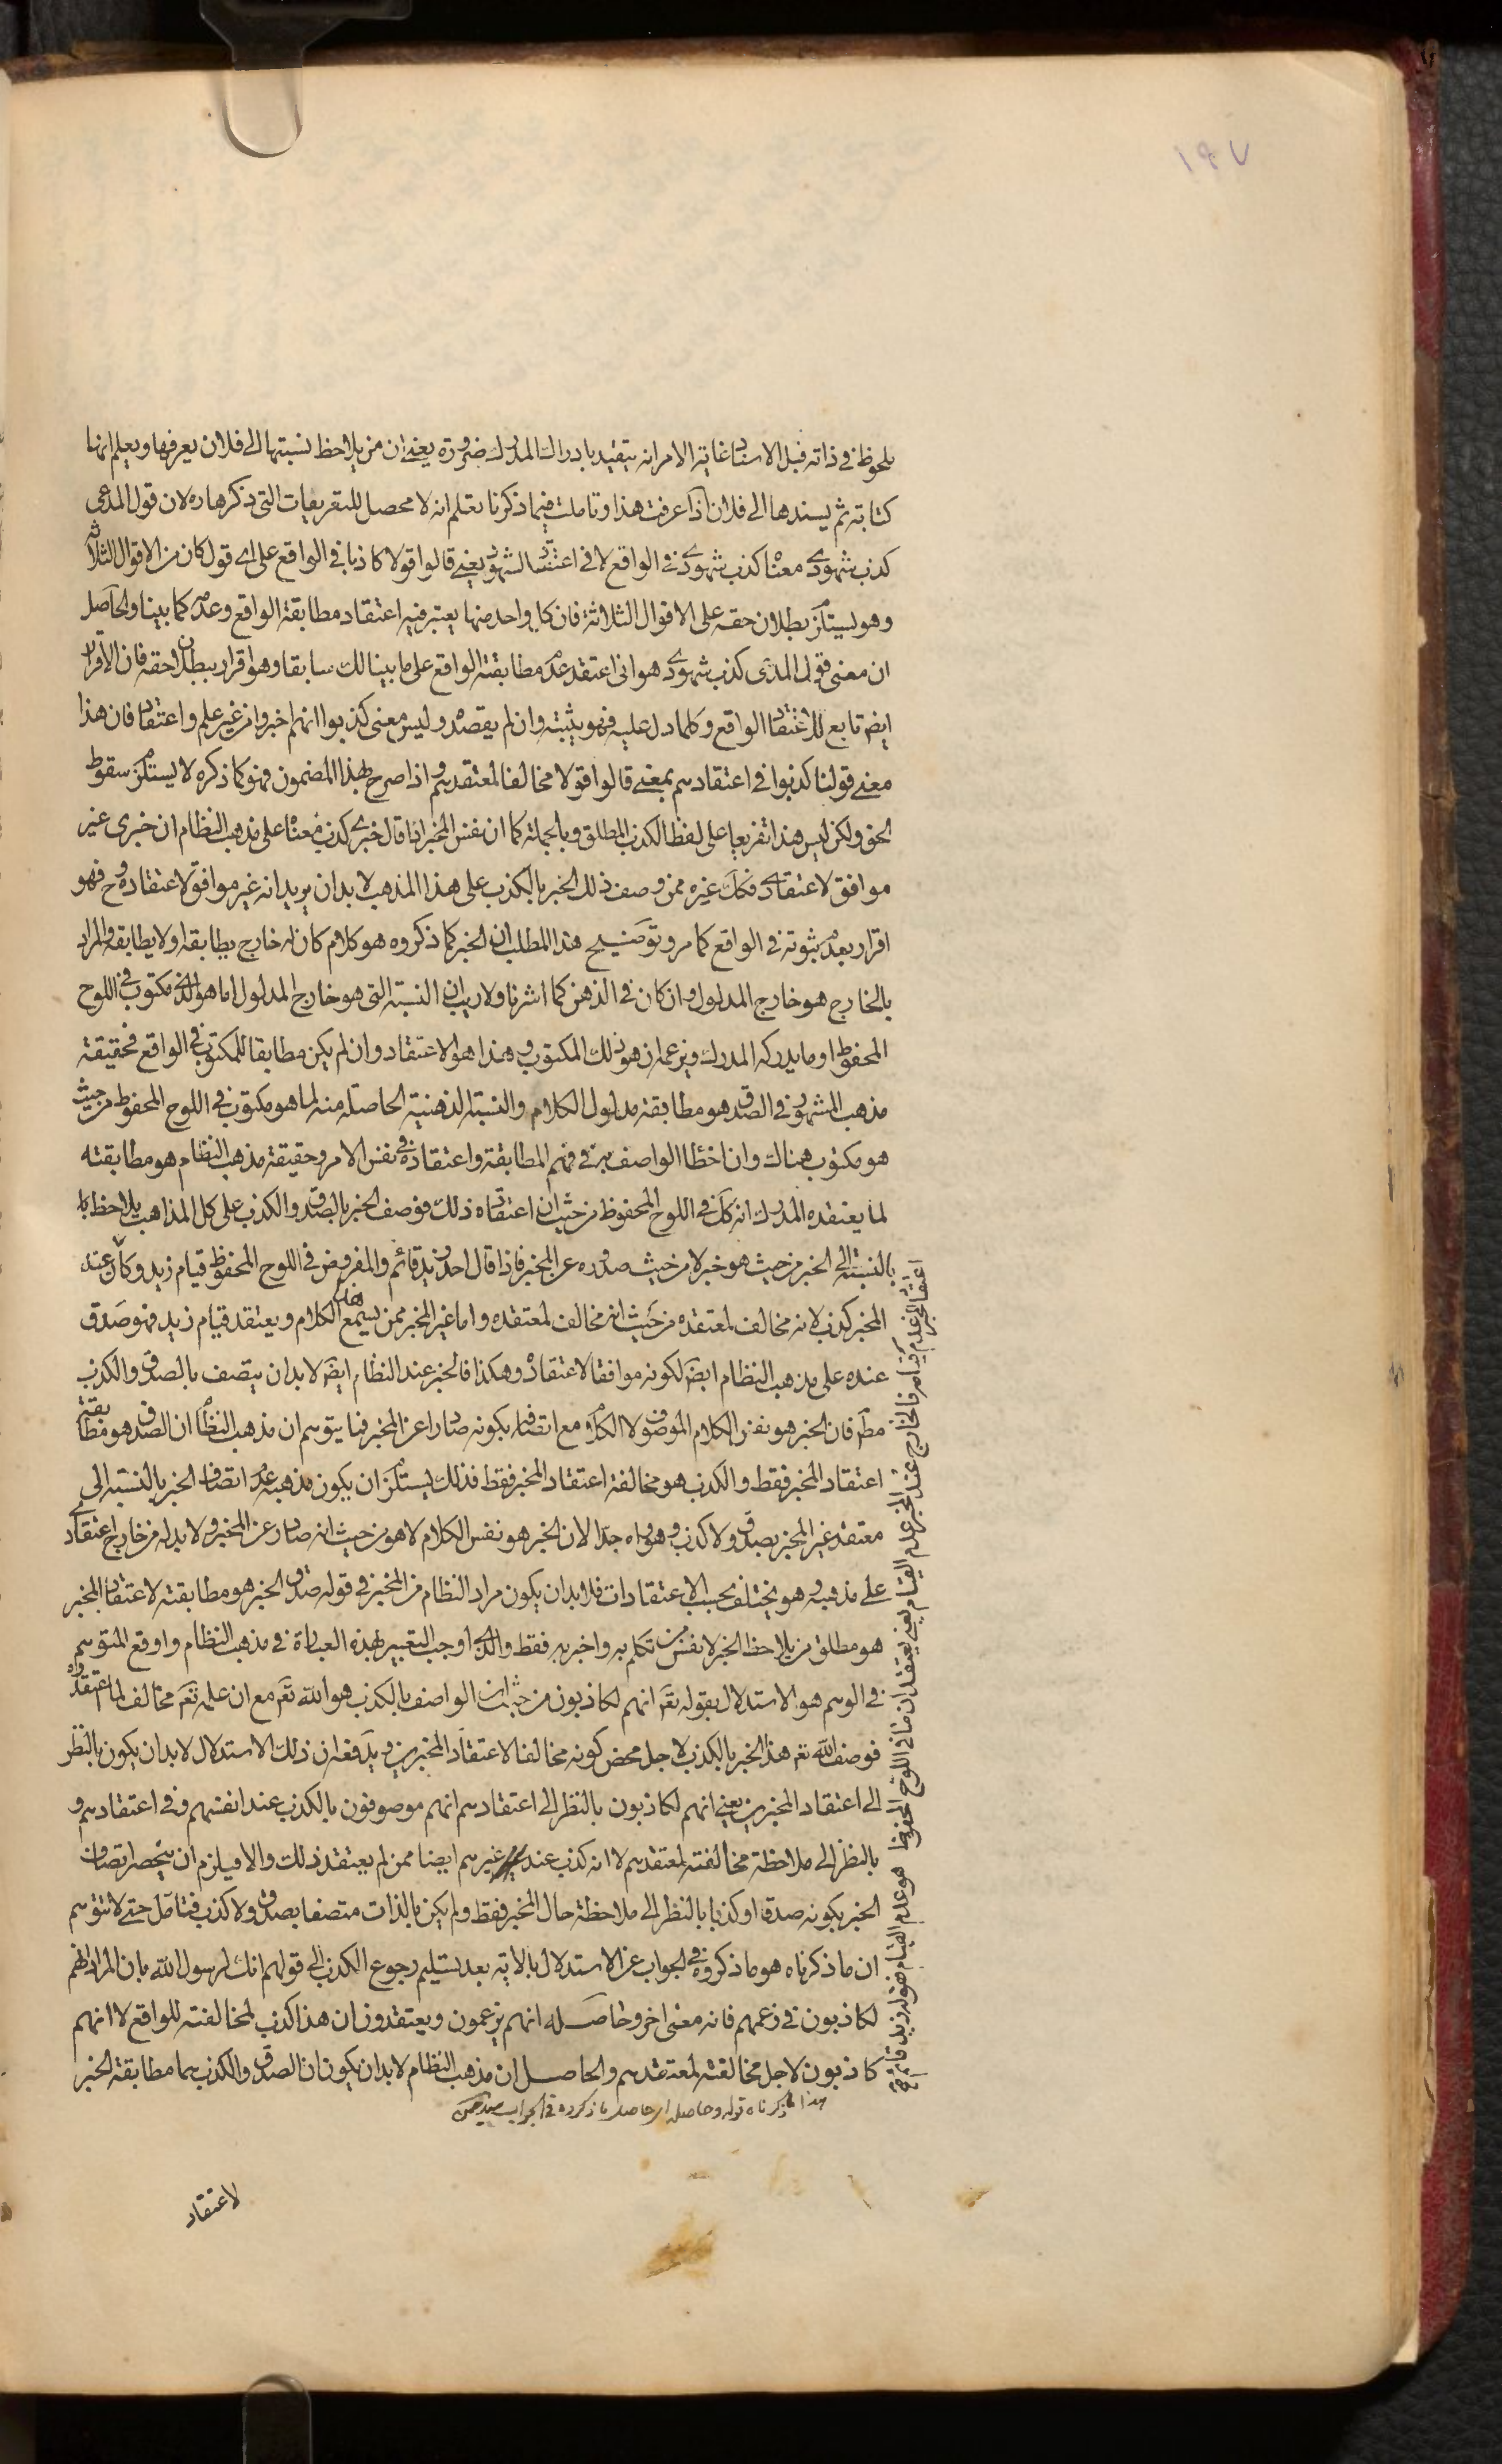 ١٩٧
ملحوظ في ذاته قبل الاسناد غاية الامر انه يتقيد بادراك المدرك ضرورة يعني ان من يلاحظ نسبتها الى فلان يعرفها ويعلم انها
كتابته ثم يسندها الى فلان اذا عرفت هذا وتاملت فيما ذكرنا تعلم انه لا محصل للتفريعات التي ذكرها ره لان قول المدعى
كذب شهودي معناه كذب شهودي في الواقع لا في اعتقاد الشهود يعني قالوا قولا كاذبا في الواقع على اي قول كان من الاقوال الثلاثة
وهو يستلزم بطلان حقه على الاقوال الثلاثة فان كل واحد منها يعتبر فيه اعتقاد مطابقة الواقع وعدمه كما بينا والحاصل
ان معنى قول المدعى كذب شهودي هو اني اعتقد عدم مطابقته الواقع على ما بينا لك سابقا وهو اقرار ببطلان حقه فان الاقرار
ايض تابع للاعتقاد الواقع وكلما دل عليه فهو يثبته وان لم يقصده وليس معنى كذبوا انهم اخبروا من غير علم واعتقاد فان هذا
معنى قولنا كذبوا في اعتقادهم بمعنى قالوا قولا مخالفا لمعتقدهم واذا صرح بهذا المضمون فهو كما ذكره لا يستلزم سقوط
الحق ولكن ليس هذا تفريعا على لفظ الكذب المطلق وبالجملة كما ان نفس المخبر اذا قال خبري كذب معناه على مذهب النظام ان خبري غير
موافق لاعتقادي فكك غيره ممن وصف ذلك الخبر بالكذب على هذا المذهب لا بد ان يريد انه غير موافق لاعتقاده وح فهو
اقرار بعدم ثبوته في الواقع كما مر وتوضيح هذا المطلب ان الخبر كما ذكروه هو كلام كان له خارج يطابقه او لا يطابقه والمراد
بالخارج هو خارج المدلول وان كان في الذهن كما اشرنا ولا ريب ان النسبة التي هو خارج المدلول اما هو الذي مكتوب في اللوح
المحفوظ او ما يدركه المدرك ويزعم ان هو ذلك المكتوب وهذا هو الاعتقاد وان لم يكن مطابقا للمكتوب في الواقع فحقيقة
مذهب المشهور في الصدق هو مطابقة مدلول الكلام والنسبة الذهنية الحاصلة منه لما هو مكتوب في اللوح المحفوظ من حيث
هو مكتوب هناك وان اخطا الواصف به في فهم المطابقة واعتقاده في نفس الامر وحقيقة مذهب النظام هو مطابقته
لما يعتقده المدرك انه كك في اللوح المحفوظ من حيث ان اعتقاده ذلك فوصف الخبر بالصدق والكذب على كل المذاهب يلاحظ
بالنسبة الى الخبر من حيث هو خبر لا من حيث صدوره عن المخبر فاذا قال احد زيد قائم والمفروض في اللوح المحفوظ قيام زيد وكان عند
المخبر كذب لانه مخالف لمعتقده من حيث انه مخالف لمعتقده واما غير المخبر ممن يسمع هذا الكلام ويعتقد قيام زيد فهو صدق
عنده على مذهب النظام ايض لكونه موافقا لاعتقاده وهكذا فالخبر عند النظام ايض لا بد ان يتصف بالصدق والكذب
مط فان الخبر هو نفس الكلام الموصوف لا الكلام مع اتصافه بكونه صادرا عن المخبر فما يتوهم ان مذهب النظام ان الصدق هو مطابقة
اعتقاد المخبر فقط والكذب هو مخالفة اعتقاد المخبر فقط فذلك يستلزم ان يكون مذهبه عدم اتصاف الخبر بالنسبة الى
معتقد غير المخبر بصدق ولا كذب وهو واه جدا لان الخبر هو نفس الكلام لا هو من حيث انه صادر عن المخبر ولا بد له من خارج اعتقادي
على مذهبه وهو يختلف بحسب الاعتقادات فلا بد ان يكون مراد النظام من المخبر في قوله صدق الخبر هو مطابقته لاعتقاد المخبر
هو مطلق من يلاحظ الخبر لا نفس من تكلم به واخبر به فقط والذي اوجب التعبير بهذه العبارة في مذهب النظام واوقع المتوهم
في الوهم هو الاستدلال بقوله تع انهم لكاذبون من حيث ان الواصف بالكذب هو الله تع مع ان علمه تع مخالف لما اعتقدوه
فوصف الله تع هذا الخبر بالكذب لاجل محض كونه مخالفا لاعتقاد المخبرين ويدفعه ان ذلك الاستدلال لا بد ان يكون بالنظر
الى اعتقاد المخبرين يعني انهم لكاذبون بالنظر الى اعتقادهم انهم موصوفون بالكذب عند انفسهم وفي اعتقادهم و
بالنظر الى ملاحظة مخالفته لمعتقدهم لا انه كذب عند غيرهم ايضا ممن لم يعتقد ذلك والا فيلزم ان ينحصر اتصاف
الخبر بكونه صدقا او كذبا بالنظر الى ملاحظة حال المخبر فقط ولم يكن بالذات متصفا بصدق ولا كذب فتامل حتى لا تتوهم
ان ما ذكرناه هو ما ذكروه في الجواب عن الاستدلال بالاية بعد تسليم رجوع الكذب الى قولهم انك لرسول الله بان المراد انهم
لكاذبون في زعمهم فانه معنى اخر وحاصله انهم يزعمون ويعتقدون ان هذا كذب لمخالفته للواقع لا انهم
كاذبون لاجل مخالفته لمعتقدهم والحاصل ان مذهب النظام لا بد ان يكون ان الصدق والكذب هما مطابقة الخبر
هذا ما ذكرناه قوله وحاصله اي حاصل ما ذكروه في الجواب
لاعتقاد
اعتقاد المخبر عدم قيامه فالخارج عند المخبر عدم القيام يعني يعتقد ان ما في اللوح المحفوظ هو عدم القيام فقوله زيد قائم